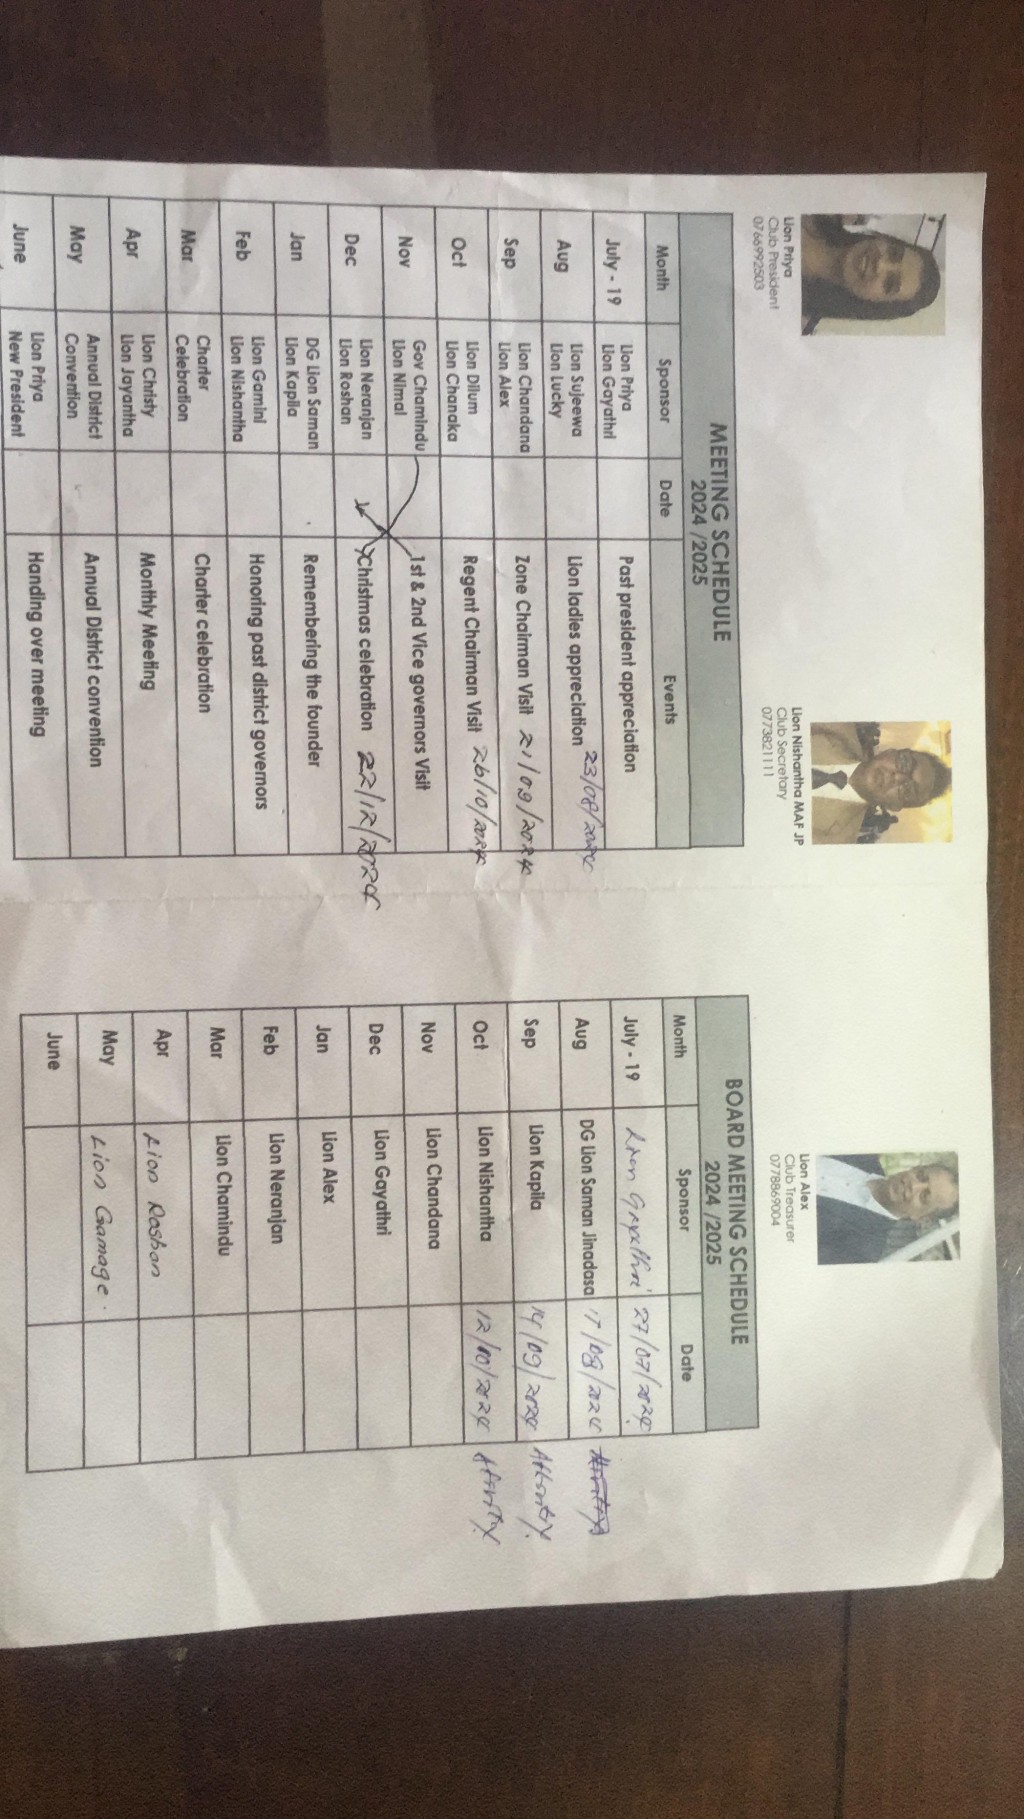 Lion Priya
Club President
0766992503
Lion Nishantha MAF JP
Club Secretary
0773821111
Lion Alex
Club Treasurer
0778869004
MEETING SCHEDULE
2024 /2025
Month Sponsor Date Events
July - 19 Lion Priya Past president appreciation
Lion Gayathri
Aug Lion Sujeewa Lion ladies appreciation 23/08/2024
Lion Lucky
Sep Lion Chandana Zone Chairman Visit 21/09/2024
Lion Alex
Oct Lion Dilum Regent Chairman Visit 26/10/2024
Lion Chanaka
Nov Gov Chamindu 1st & 2nd Vice governors Visit
Lion Nimal
Dec Lion Neranjan Christmas celebration 22/12/2024
Lion Roshan
Jan DG Lion Saman Remembering the founder
Lion Kapila
Feb Lion Gamini Honoring past district governors
Lion Nishantha
Mar Charter Charter celebration
Celebration
Apr Lion Christy Monthly Meeting
Lion Jayantha
May Annual District Annual District convention
Convention
June Lion Priya Handing over meeting
New President
BOARD MEETING SCHEDULE
2024 /2025
Month Sponsor Date
July - 19 Lion Gayathri 27/07/2024
Aug DG Lion Saman Jinadasa 17/08/2024
Sep Lion Kapila 14/09/2024
Oct Lion Nishantha 12/10/2024
Nov Lion Chandana
Dec Lion Gayathri
Jan Lion Alex
Feb Lion Neranjan
Mar Lion Chamindu
Apr Lion Roshan
May Lion Gamage.
June